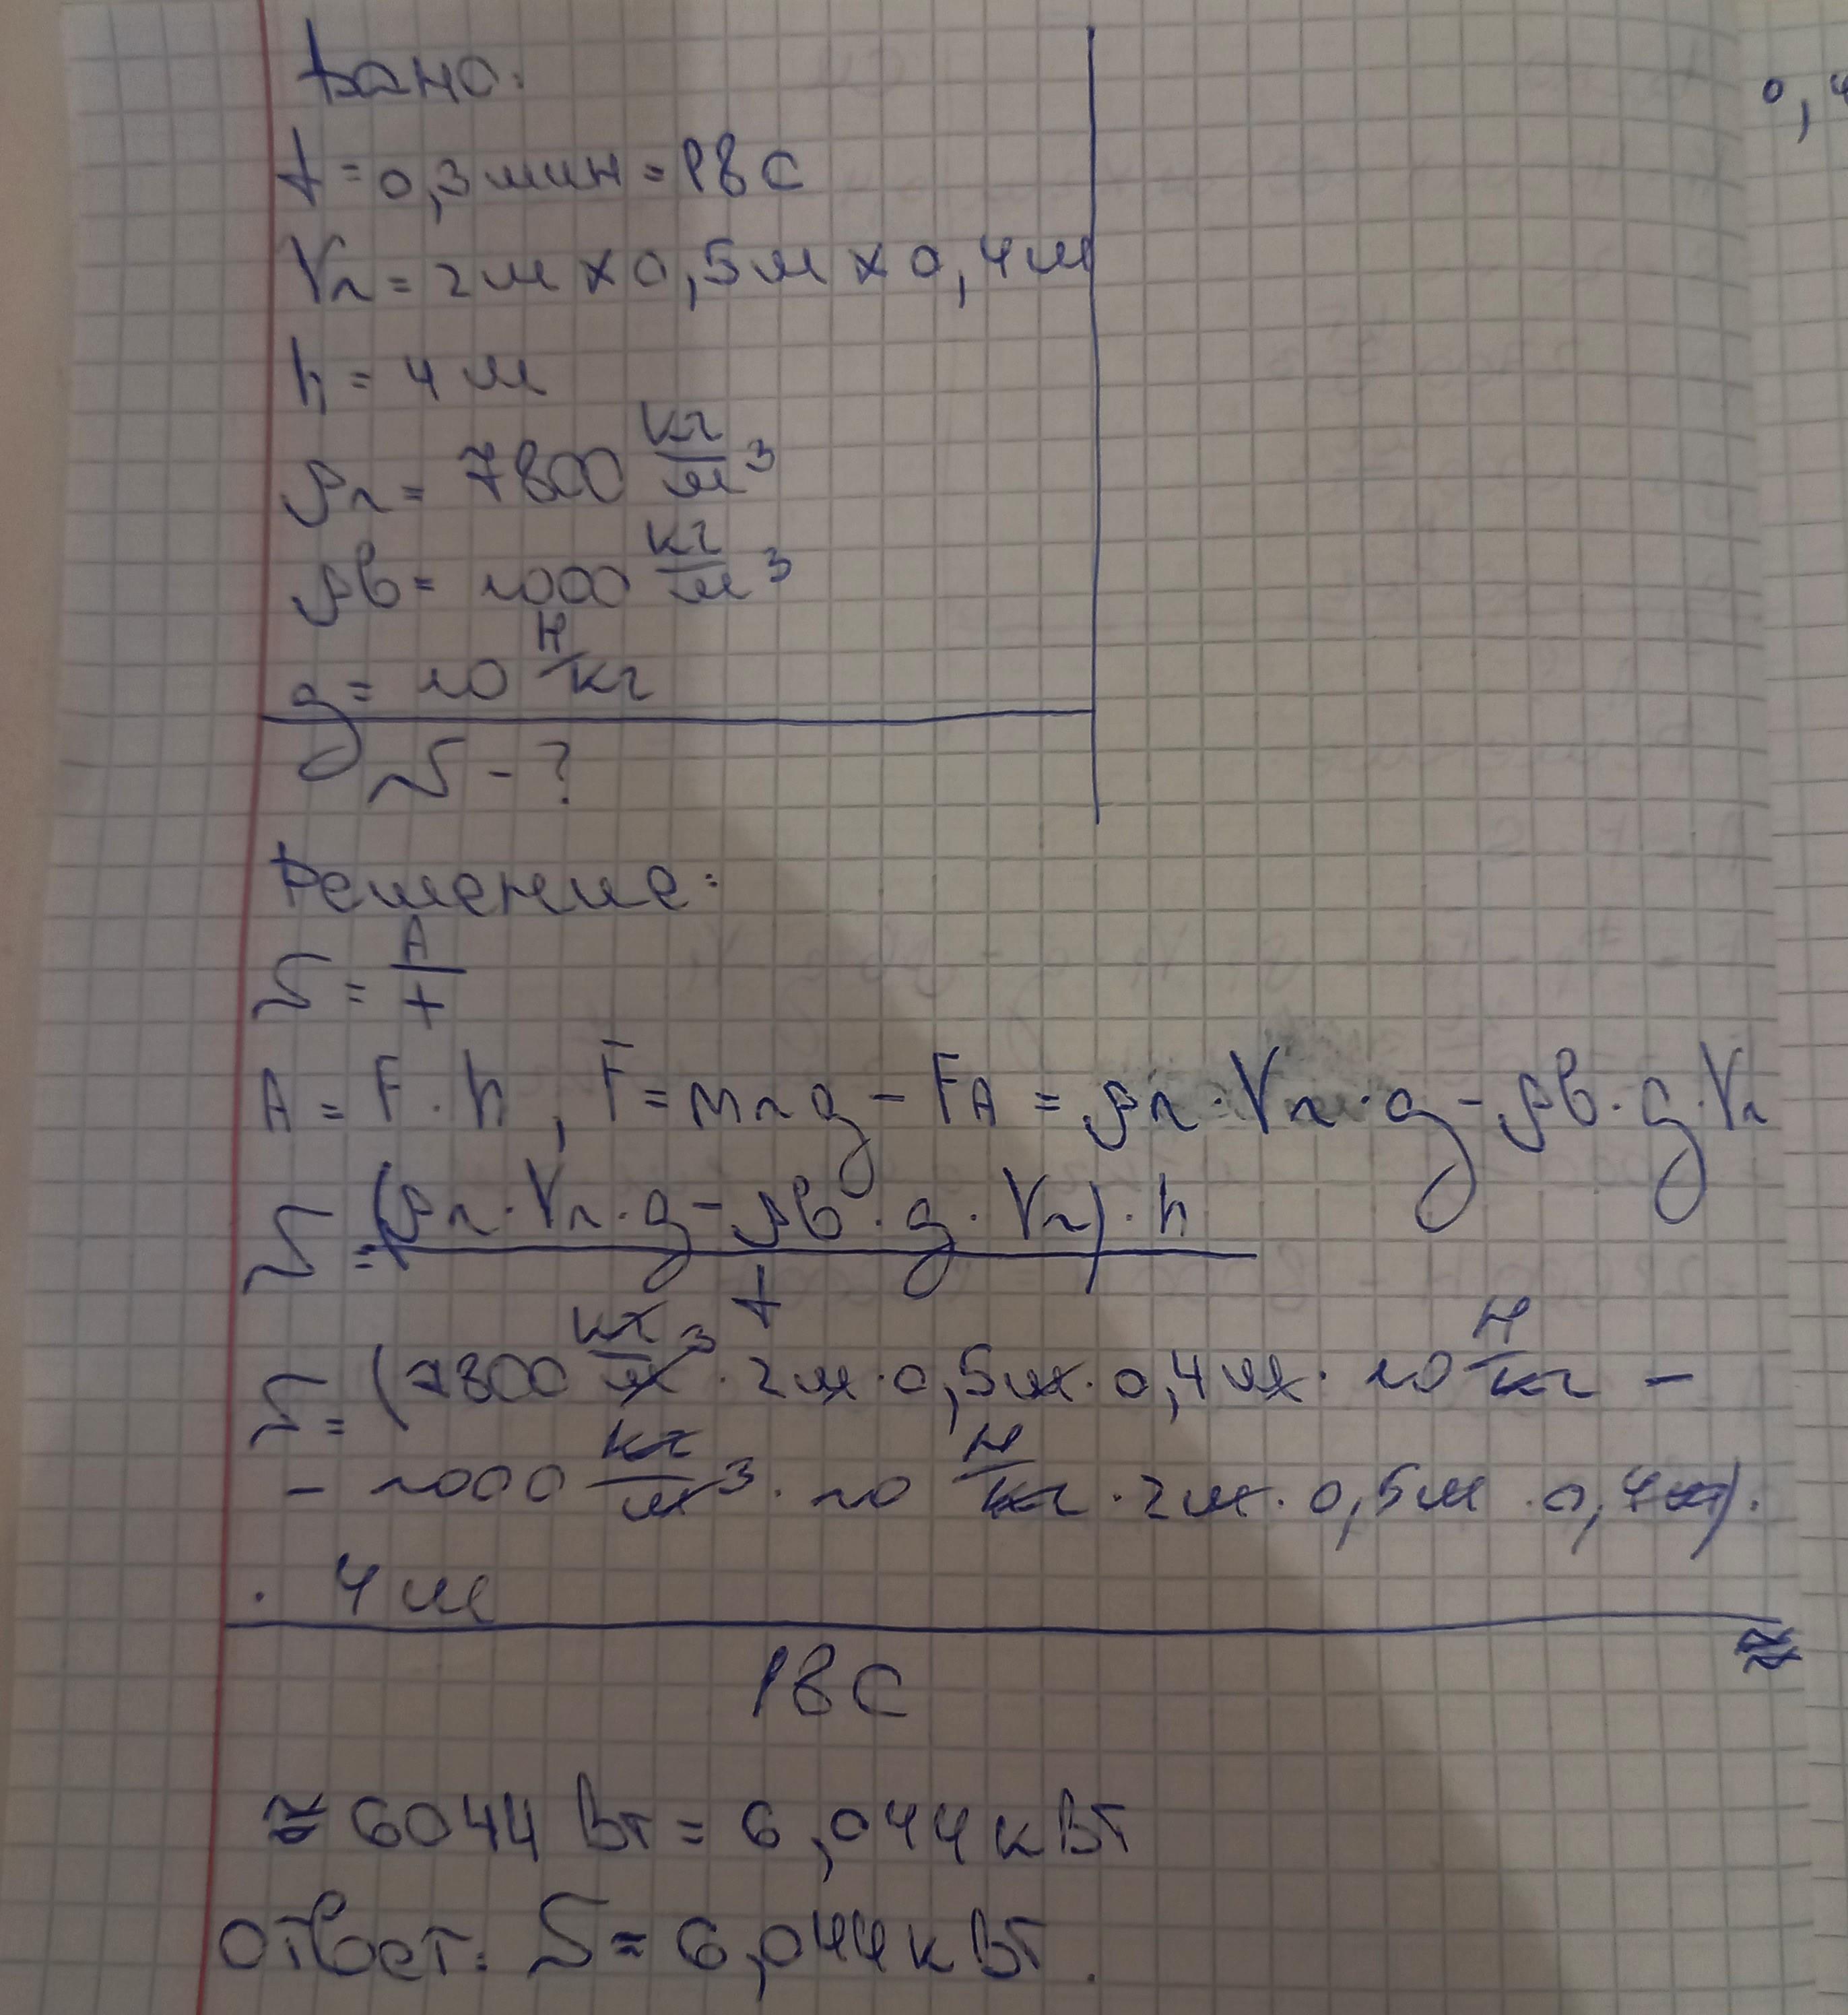 Дано:
t = 0,3 мин = 18 с
Vл = 2 м × 0,5 м × 0,4 м
h = 4 м
ρл = 7800 кг/м³
ρв = 1000 кг/м³
g = 10 Н/кг
N - ?
Решение:
N = A/t
A = F · h, F = mлg - FA = ρл · Vл · g - ρв · g · Vл
N = (ρл · Vл · g - ρв · g · Vл) · h / t
N = (7800 кг/м³ · 2 м · 0,5 м · 0,4 м · 10 Н/кг -
- 1000 кг/м³ · 10 Н/кг · 2 м · 0,5 м · 0,4 м) ·
· 4 м
18 с ≈
≈ 6044 Вт = 6,044 кВт
Ответ: N = 6,044 кВт.